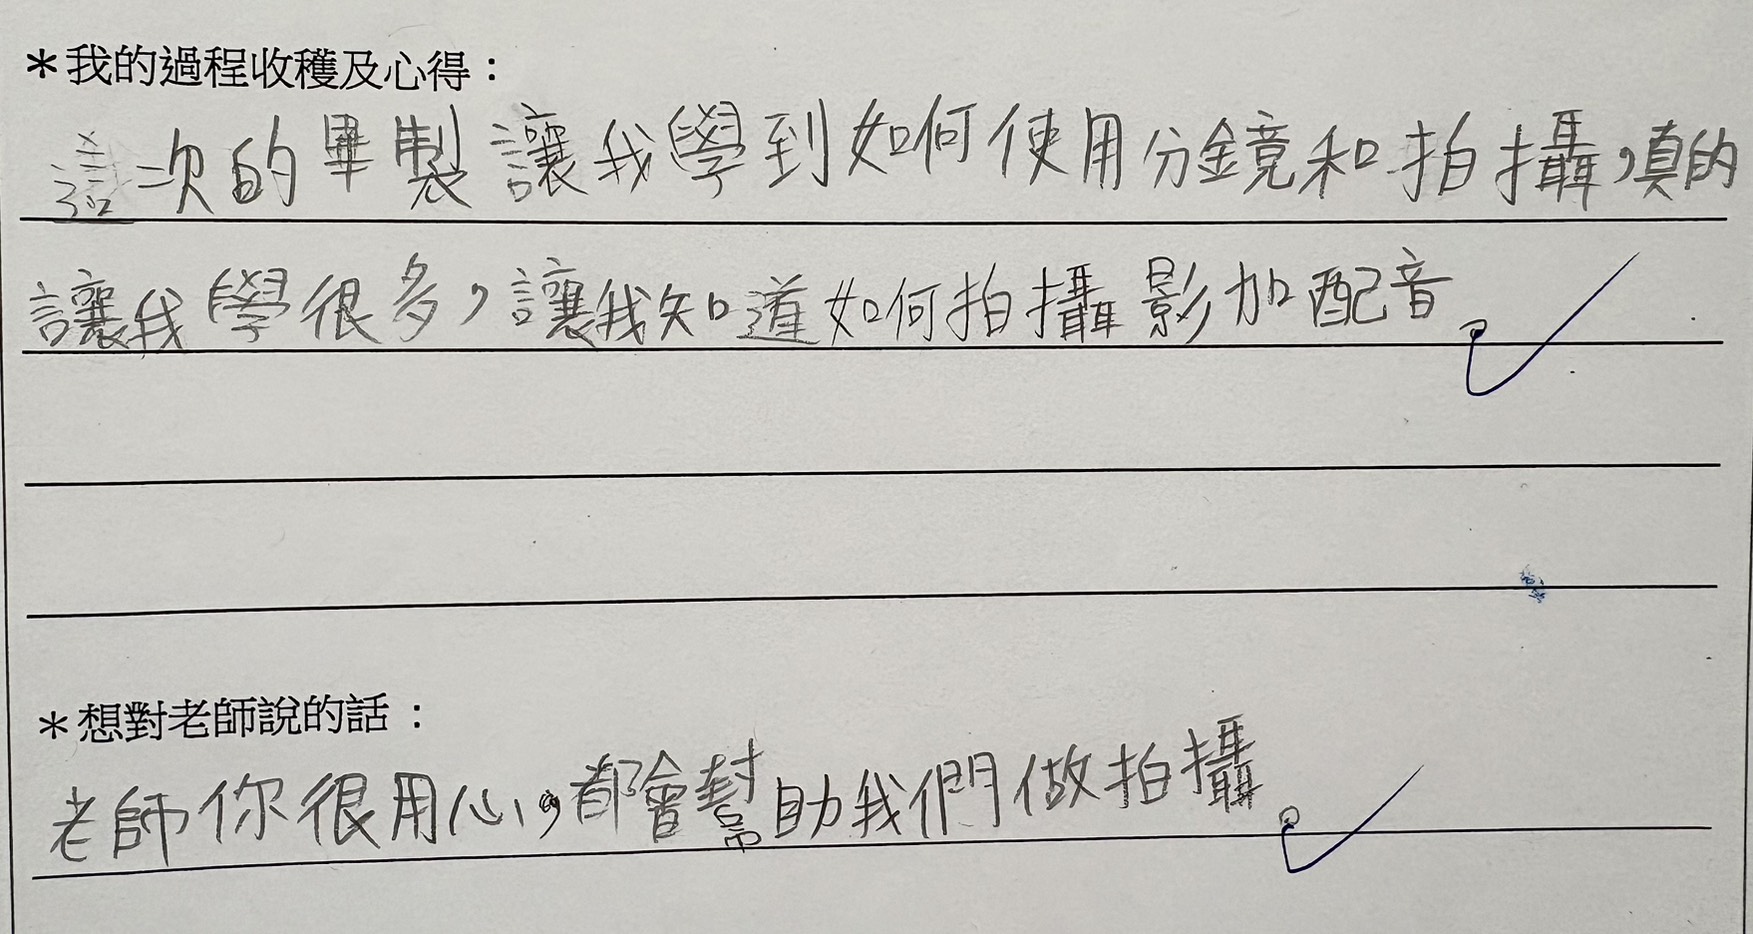 ＊我的過程收穫及心得：
這次的畢製讓我學到如何使用分鏡和拍攝，真的
讓我學很多，讓我知道如何拍攝影加配音。
＊想對老師說的話：
老師你很用心，都會幫助我們做拍攝。